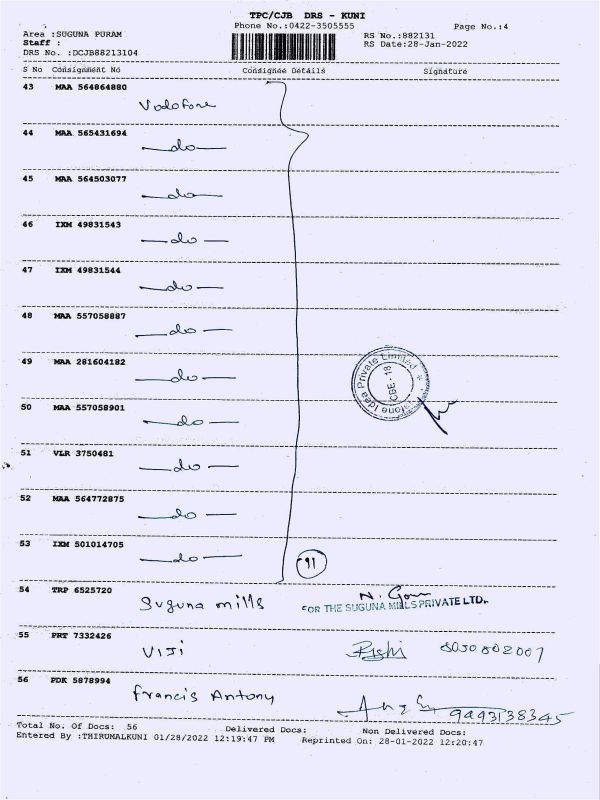 TPC/CJB DRS - KUNI
Phone No.:0422-3505555
Page No.:4
Area :SUGUNA PURAM
Staff :
DRS No. :DCJB88213104
RS No.:882131
RS Date:28-Jan-2022
S No Consignment No Consignee Details Signature
43 MAA 564864880
Vodofone
44 MAA 565431694
—do—
45 MAA 564503077
—do—
46 IXM 49831543
—do—
47 IXM 49831544
—do—
48 MAA 557058887
—do—
49 MAA 281604182
—do—
50 MAA 557058901
—do—
Idea Private Limited *
CBE - 18
51 VLR 3750481
—do—
52 MAA 564772875
—do—
53 IXM 501014705
—do—
54 TRP 6525720
Suguna mills
FOR THE SUGUNA MILLS PRIVATE LTD.
55 PRT 7332426
VIJI Rishi
56 PDK 5878994
Francis Antony
9443138345
Total No. Of Docs: 56 Delivered Docs: Non Delivered Docs:
Entered By :THIRUMALKUNI 01/28/2022 12:19:47 PM Reprinted On: 28-01-2022 12:20:47